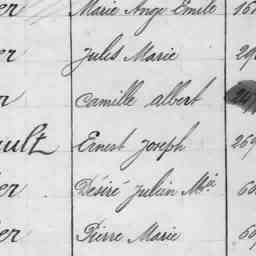 er Marie Ange Emile 16
er Jules Marie 29
r Camille albert
ault Ernest Joseph 269
ier Désiré Julien Mie 60
er Pierre Marie 60